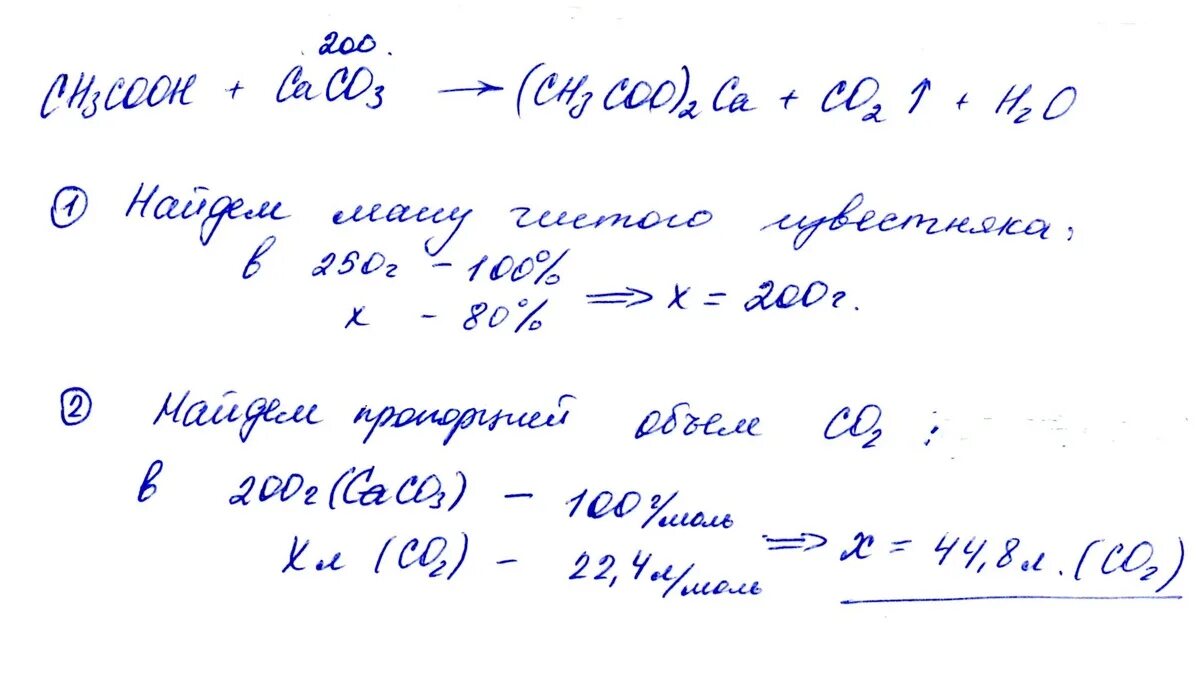 200.
CH₃COOH + CaCO₃ → (CH₃COO)₂Ca + CO₂ ↑ + H₂O
① Найдем массу чистого известняка:
в 250г - 100%
x - 80% ⟹ x = 200г.
② Найдем пропорций объем CO₂ :
в 200г (CaCO₃) - 100 г/моль
Xл (CO₂) - 22,4 л/моль ⟹ x = 44,8 л. (CO₂)